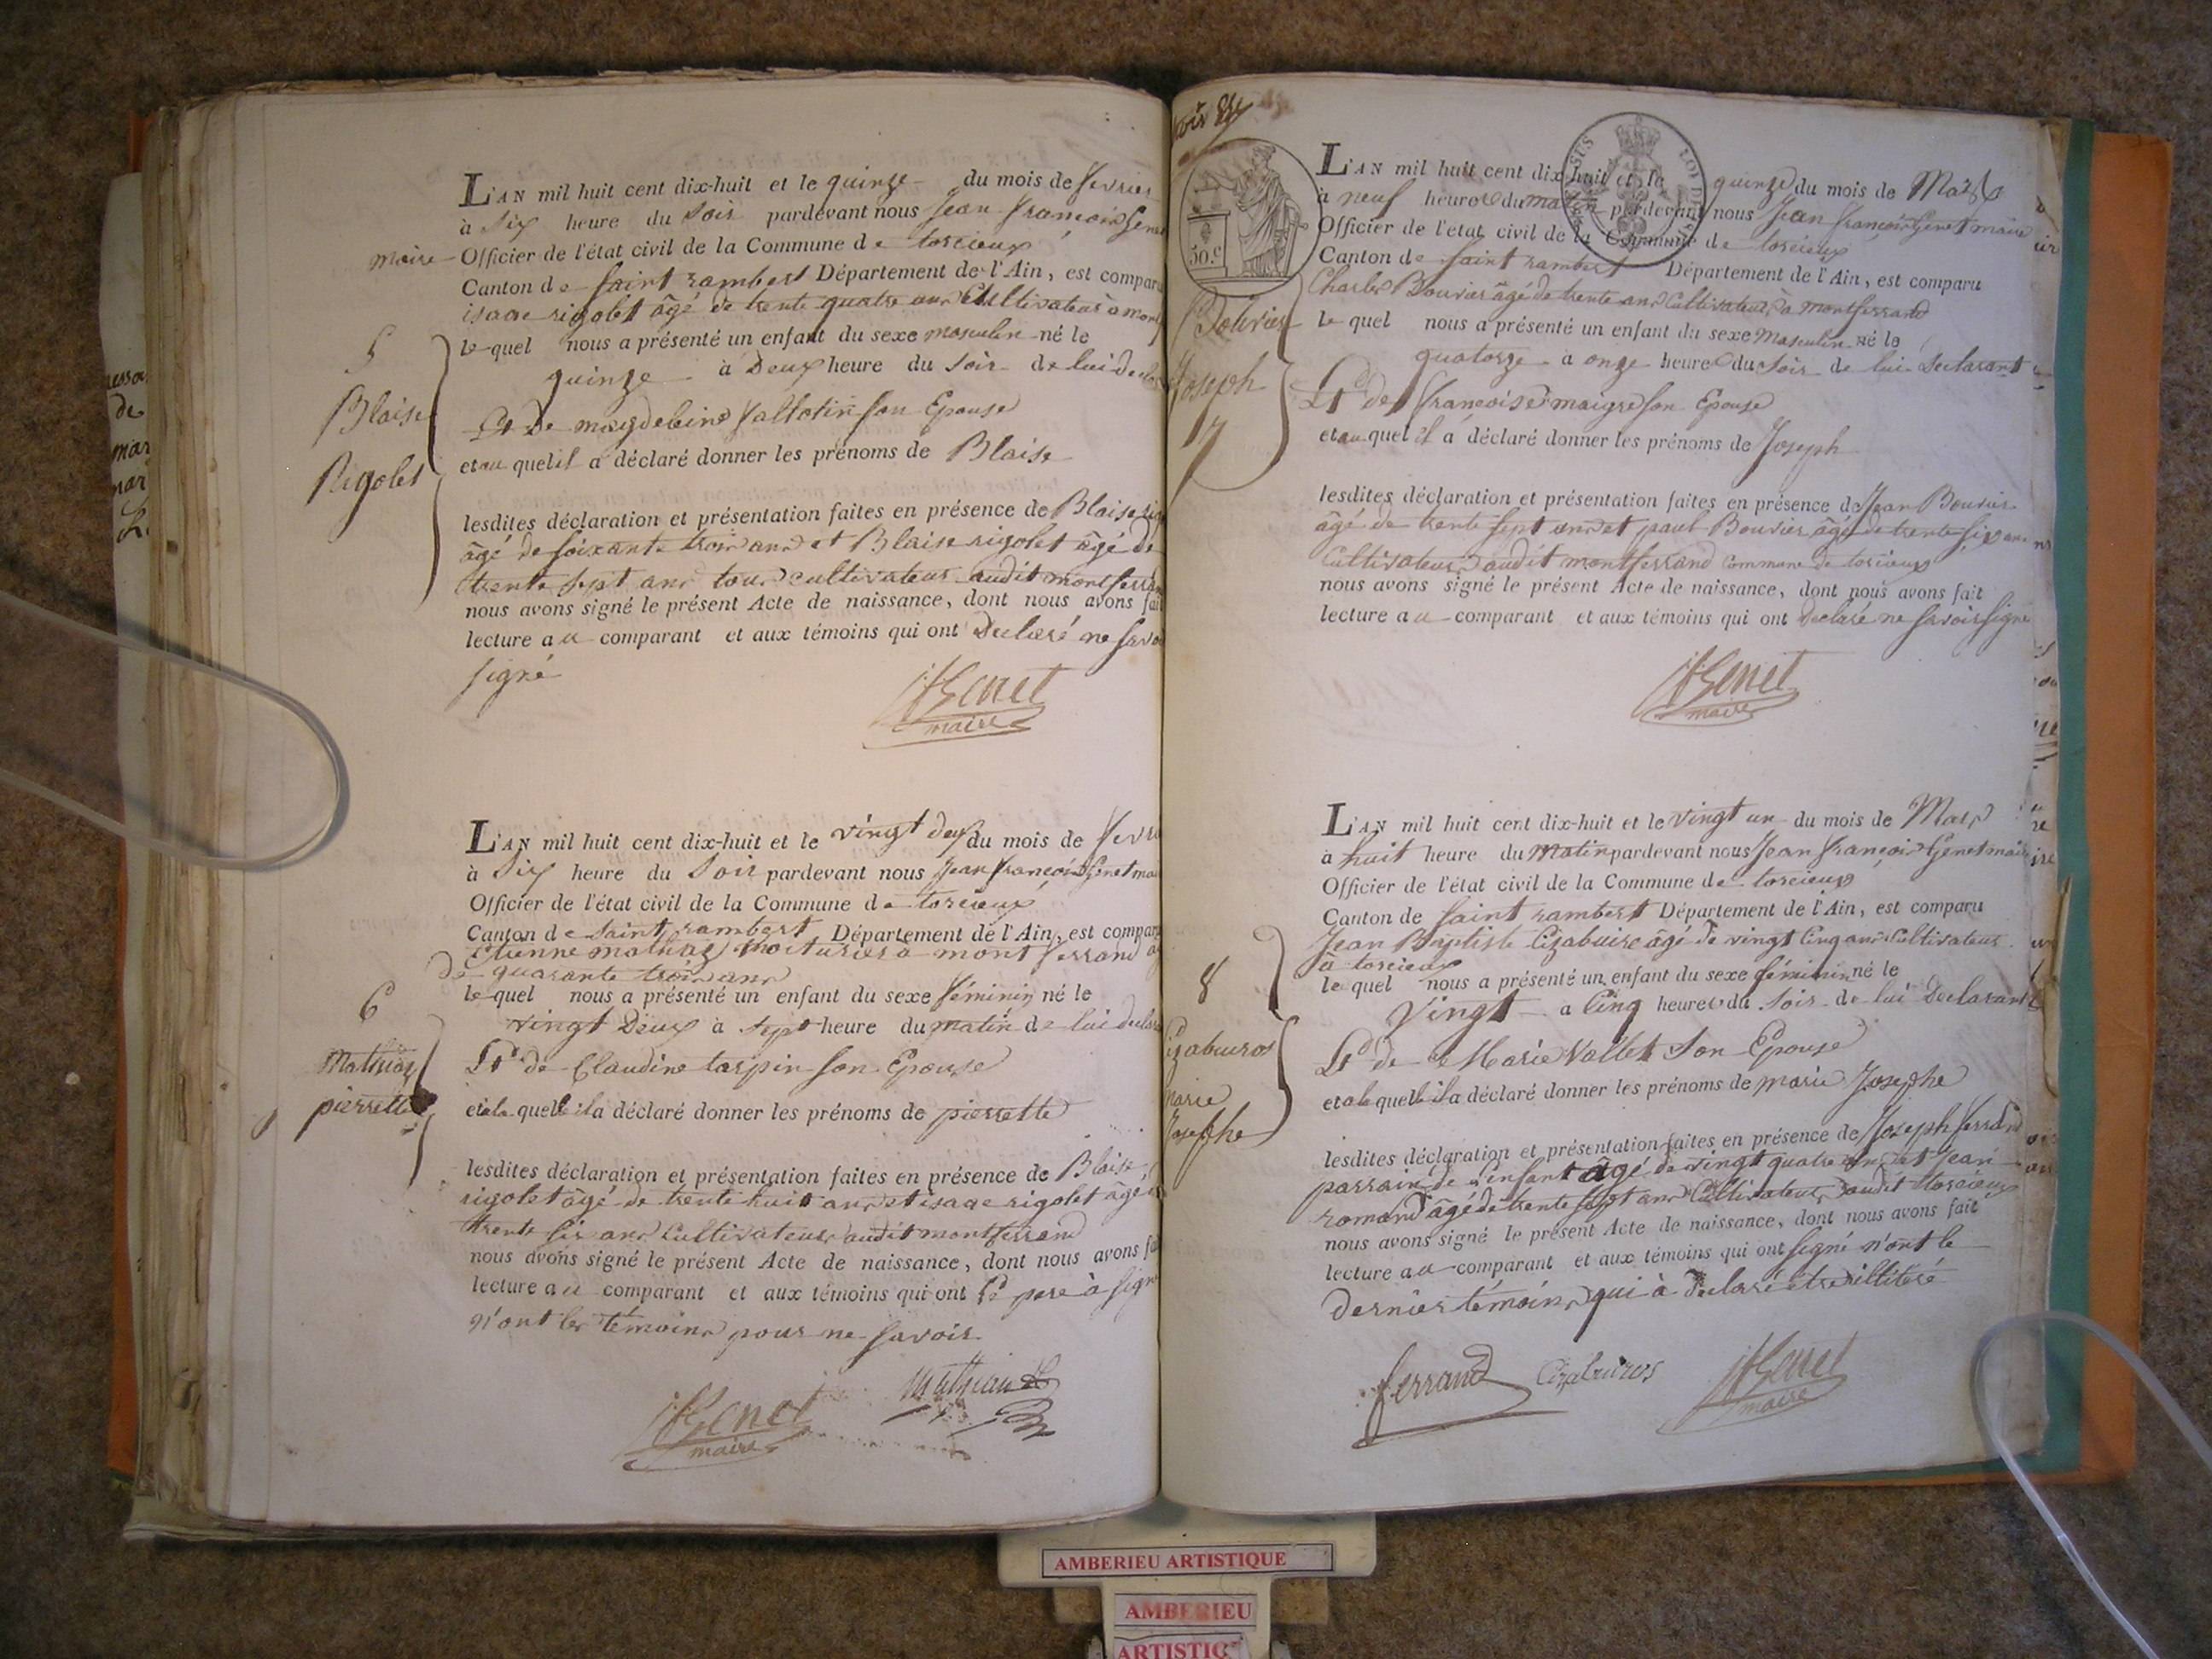 L'AN mil huit cent dix-huit et le quinze du mois de fevrier
à Six heure du Soir pardevant nous Jean françois Genet
maire Officier de l'état civil de la Commune de torcieux
Canton de saint rambert Département de l'Ain, est comparu
isaac rigolet âgé de trente quatre ans Cultivateur à
5
le quel nous a présenté un enfant du sexe masculin né le
quinze à Deux heure du Soir de lui
Blaise
Et de magdeleine Vallotin son Epouse
et au quel il a déclaré donner les prénoms de Blaise
Rigolet
lesdites déclaration et présentation faites en présence de Blaise
âgé de soixante trois ans et Blaise rigolet âgé de
trente sept ans tous cultivateur audit montferrand
nous avons signé le présent Acte de naissance, dont nous avons fait
lecture au comparant et aux témoins qui ont Declaré ne savoir
signé
JfGenet
maire
L'AN mil huit cent dix-huit et le vingt deux du mois de
à Six heure du Soir pardevant nous Jean françois Genet
Officier de l'état civil de la Commune de torcieux
Canton de Saint rambert Département de l'Ain, est comparu
Etienne mathiaz à mont ferrand
de quarante trois ans
6
le quel nous a présenté un enfant du sexe féminin né le
vingt Deux à sept heure du matin de lui
Mathiaz
Et de Claudine tarpin son Epouse
pierrette
et a la quelle il a déclaré donner les prénoms de pierrette
lesdites déclaration et présentation faites en présence de Blaise
rigolet âgé de trente huit ans et isaac rigolet âgé
trente six ans Cultivateur audit montferrand
nous avons signé le présent Acte de naissance, dont nous avons
lecture au comparant et aux témoins qui ont Le pere à signé
n'ont les témoins pour ne savoir
JfGenet
maire
50.c
L'AN mil huit cent dix-huit et le quinze du mois de Mars
à neuf heures du matin pardevant nous Jean françois Genet maire
Officier de l'état civil de la Commune de torcieux
Canton de saint rambert Département de l'Ain, est comparu
Charles Bouvier âgé de trente ans Cultivateur à montferrand
Bouvier
le quel nous a présenté un enfant du sexe Masculin né le
quatorze à onze heures du Soir de lui Declarant
Joseph
Et de françoise maigre son Epouse
7
et au quel il a déclaré donner les prénoms de Joseph
lesdites déclaration et présentation faites en présence de Jean Bouvier
âgé de trente sept ans et paul Bouvier âgé de trente six ans
Cultivateurs audit montferrand Commune de torcieux
nous avons signé le présent Acte de naissance, dont nous avons fait
lecture au comparant et aux témoins qui ont Declaré ne savoir signé
JfGenet
maire
L'AN mil huit cent dix-huit et le vingt un du mois de Mars
à huit heure du Matin pardevant nous Jean françois Genet maire
Officier de l'état civil de la Commune de torcieux
Canton de saint rambert Département de l'Ain, est comparu
Jean Baptiste âgé de vingt Cinq ans Cultivateur
à torcieux
8
le quel nous a présenté un enfant du sexe féminin né le
Vingt à Cinq heures du Soir de lui Declarant
Et de Marie Vallet Son Epouse
marie
et a la quelle il a déclaré donner les prénoms de marie Josephe
Josephe
lesdites déclaration et présentation faites en présence de Joseph ferrand
parrain de l'enfant âgé de vingt quatre ans et Jean
romand âgé de trente sept ans Cultivateur audit torcieux
nous avons signé le présent Acte de naissance, dont nous avons fait
lecture au comparant et aux témoins qui ont signé n'ont le
dernier témoins qui à Declaré etre illitéré
ferrand
JfGenet
maire
AMBERIEU ARTISTIQUE
AMBERIEU
ARTISTIQ